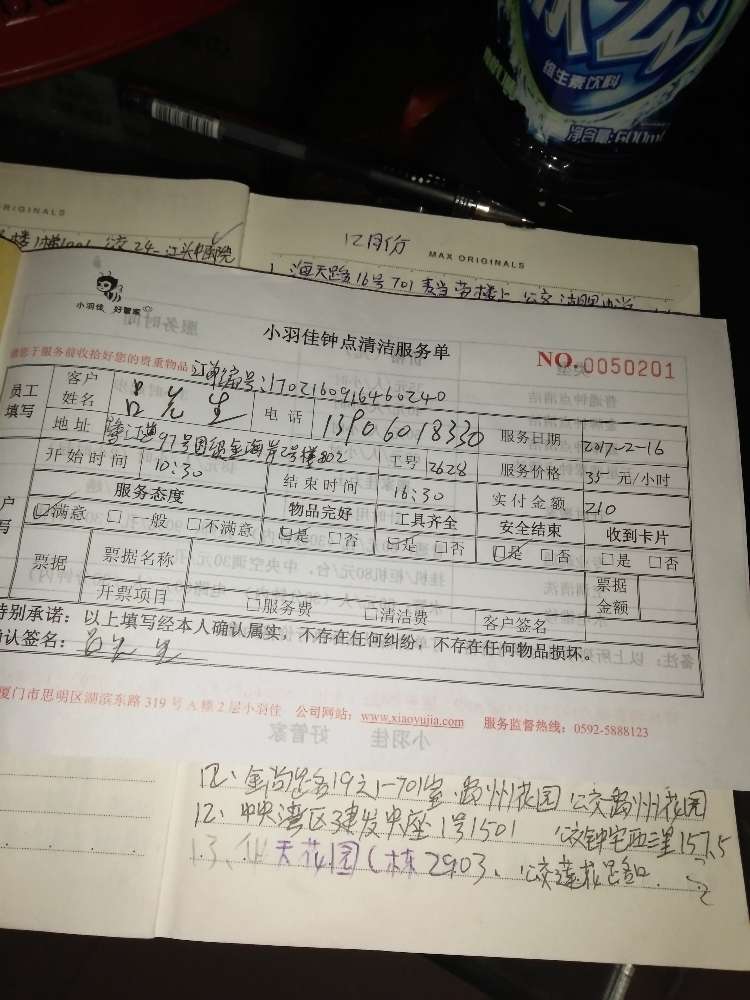 维生素饮料
净含量:600ml
ORIGINALS
12月份
MAX ORIGINALS
小羽佳 好管家
小羽佳钟点清洁服务单
NO.0050201
您于服务前收拾好您的贵重物品
订单编号:1702160916460240
员工填写
客户姓名 吕先生 电话 13906018330 服务日期 2017-2-16
地址 97号国贸金海岸2号楼802 工号 2628 服务价格 35元/小时
开始时间 10:30 结束时间 16:30 实付金额 210
服务态度 物品完好 工具齐全 安全结束 收到卡片
☑满意 □一般 □不满意 ☑是 □否 ☑是 □否 ☑是 □否 □是 □否
票据 票据名称 票据金额
开票项目 □服务费 □清洁费 客户签名
特别承诺:以上填写经本人确认属实,不存在任何纠纷,不存在任何物品损坏。
确认签名:吕先生
厦门市思明区湖滨东路 319 号 A 楼 2 层小羽佳 公司网站:www.xiaoyujia.com 服务监督热线:0592-5888123
12、金尚路19之1-701室 公交
12、中央湾区建发中座1号1501
13、天花园1栋2903、公交莲花路口